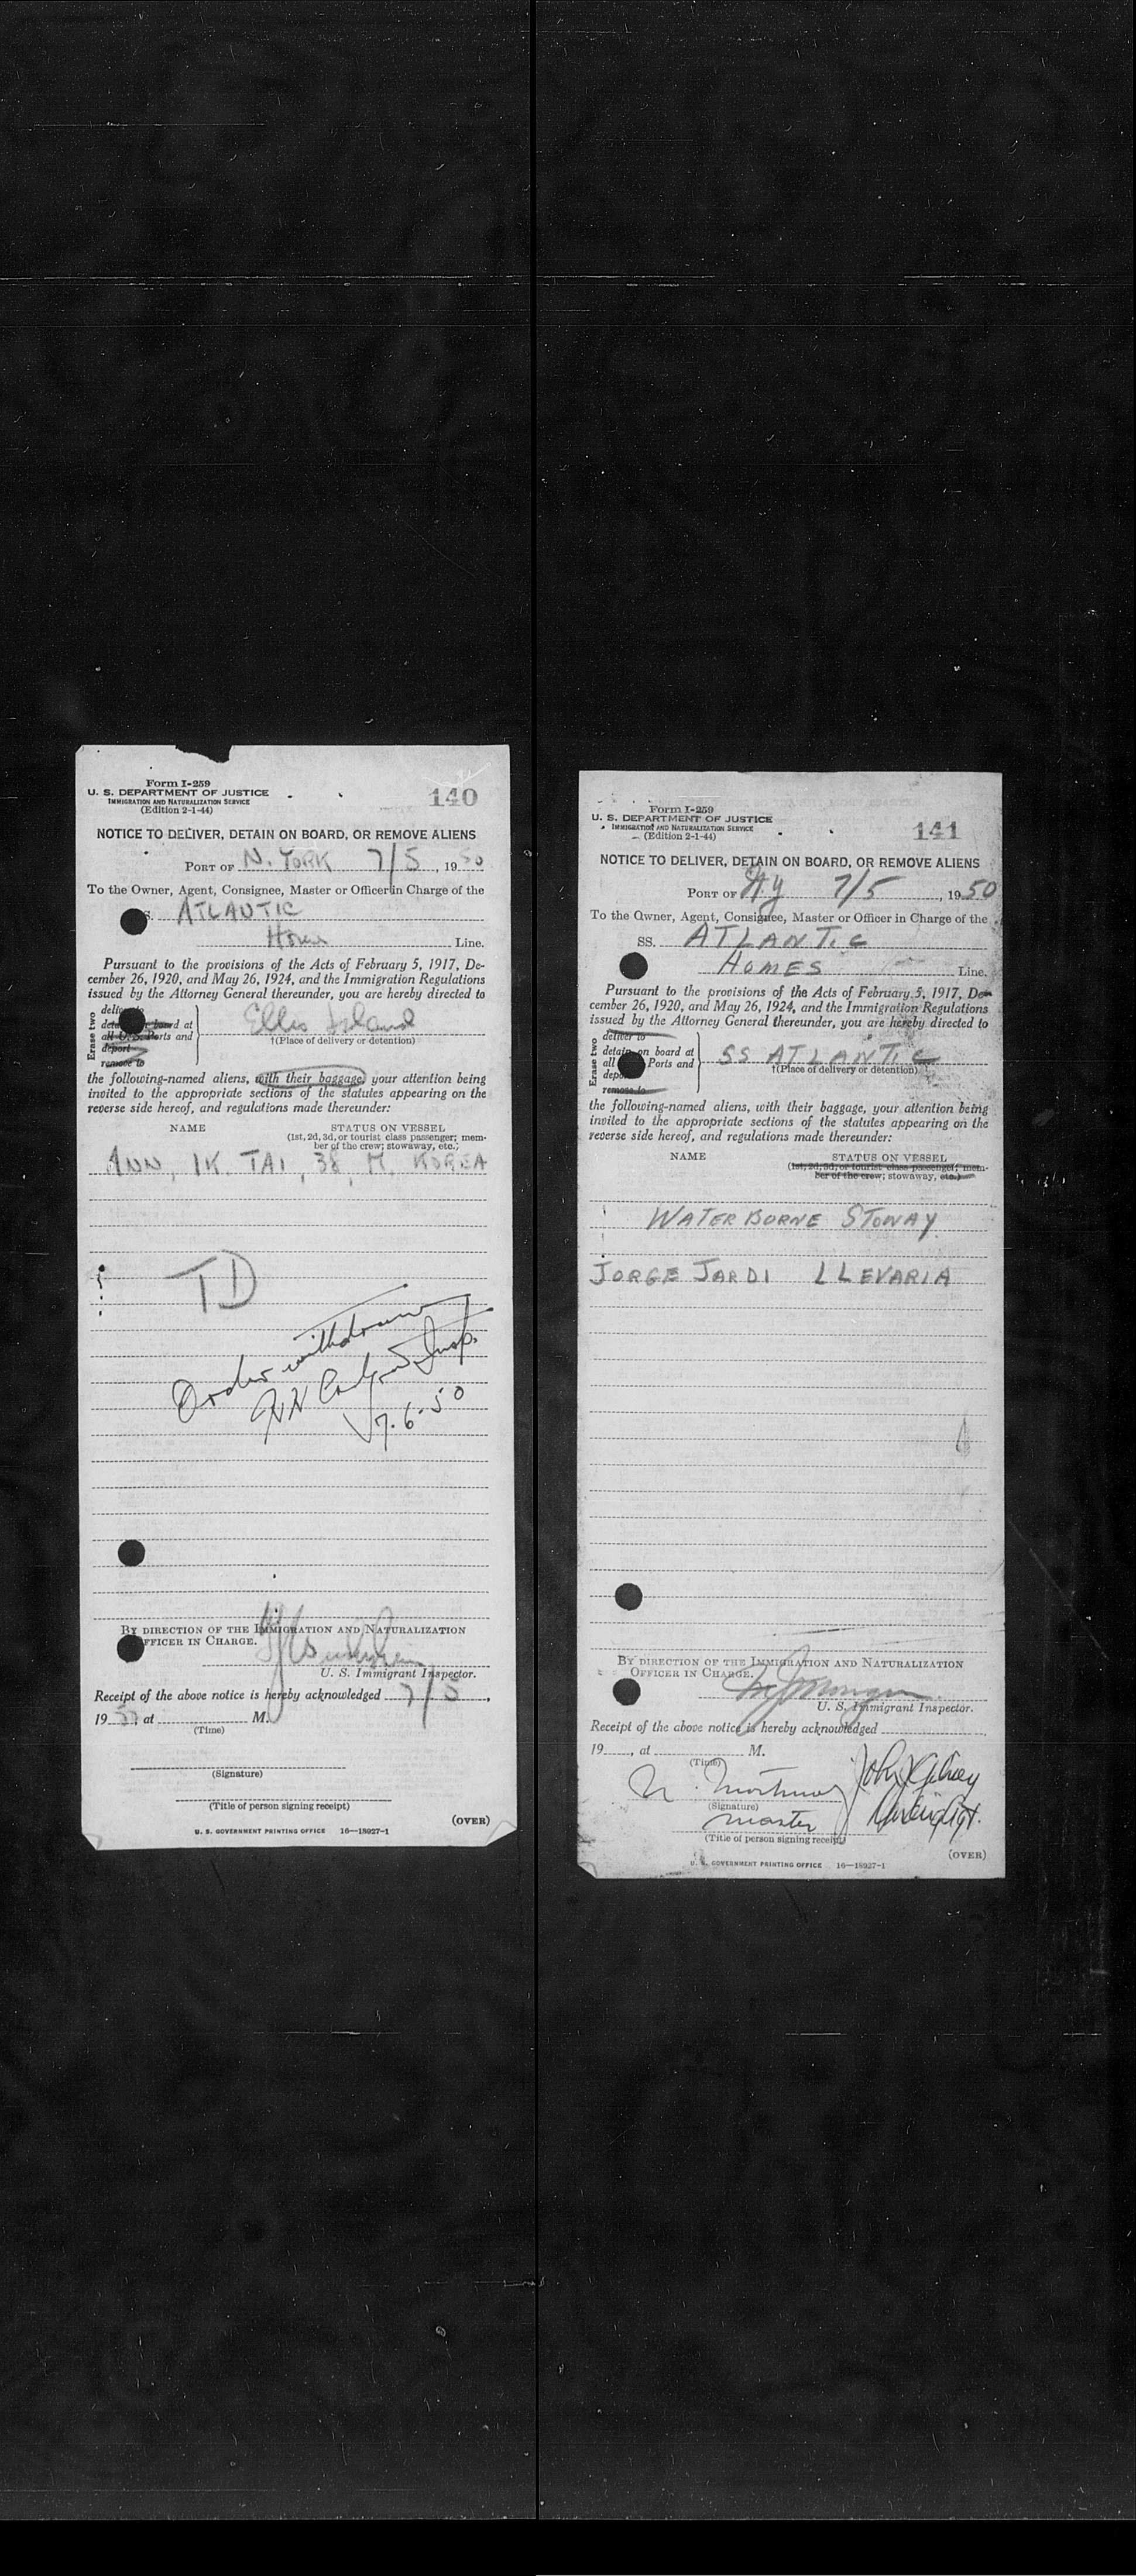 Form I-259
U. S. DEPARTMENT OF JUSTICE
IMMIGRATION AND NATURALIZATION SERVICE
(Edition 2-1-44)
140
NOTICE TO DELIVER, DETAIN ON BOARD, OR REMOVE ALIENS
PORT OF N. YORK 7/5, 1950
To the Owner, Agent, Consignee, Master or Officer in Charge of the
ATLANTIC
Home Line.
Pursuant to the provisions of the Acts of February 5, 1917, De-
cember 26, 1920, and May 26, 1924, and the Immigration Regulations
issued by the Attorney General thereunder, you are hereby directed to
Erase two
deliver to
detain on board at
all U. S. Ports and
deport
remove to
Ellis Island
†(Place of delivery or detention)
the following-named aliens, with their baggage, your attention being
invited to the appropriate sections of the statutes appearing on the
reverse side hereof, and regulations made thereunder:
NAME STATUS ON VESSEL
(1st, 2d, 3d, or tourist class passenger; mem-
ber of the crew; stowaway, etc.)
ANN, IK. TAI, 38, M. KOREA
TD
Order withdrawn
Insp.
7-6-50
BY DIRECTION OF THE IMMIGRATION AND NATURALIZATION
OFFICER IN CHARGE.
U. S. Immigrant Inspector.
Receipt of the above notice is hereby acknowledged 7/5,
19 50, at M.
(Time)
(Signature)
(Title of person signing receipt)
(OVER)
U. S. GOVERNMENT PRINTING OFFICE 16—18927-1
Form I-259
U. S. DEPARTMENT OF JUSTICE
IMMIGRATION AND NATURALIZATION SERVICE
(Edition 2-1-44)
141
NOTICE TO DELIVER, DETAIN ON BOARD, OR REMOVE ALIENS
PORT OF NY 7/5, 1950
To the Owner, Agent, Consignee, Master or Officer in Charge of the
SS. ATLANTIC
HOMES Line.
Pursuant to the provisions of the Acts of February 5, 1917, De-
cember 26, 1920, and May 26, 1924, and the Immigration Regulations
issued by the Attorney General thereunder, you are hereby directed to
Erase two
deliver to
detain on board at
all Ports and
depo
remove to
SS ATLANTIC
†(Place of delivery or detention)
the following-named aliens, with their baggage, your attention being
invited to the appropriate sections of the statutes appearing on the
reverse side hereof, and regulations made thereunder:
NAME STATUS ON VESSEL
(1st, 2d, 3d, or tourist class passenger; mem-
ber of the crew; stowaway, etc.)
WATERBORNE STOWAY
JORGE JARDI LLEVARIA
BY DIRECTION OF THE IMMIGRATION AND NATURALIZATION
OFFICER IN CHARGE.
U. S. Immigrant Inspector.
Receipt of the above notice is hereby acknowledged
19, at M.
(Time)
John
(Signature)
master
(Title of person signing receipt)
(OVER)
U. S. GOVERNMENT PRINTING OFFICE 16—18927-1